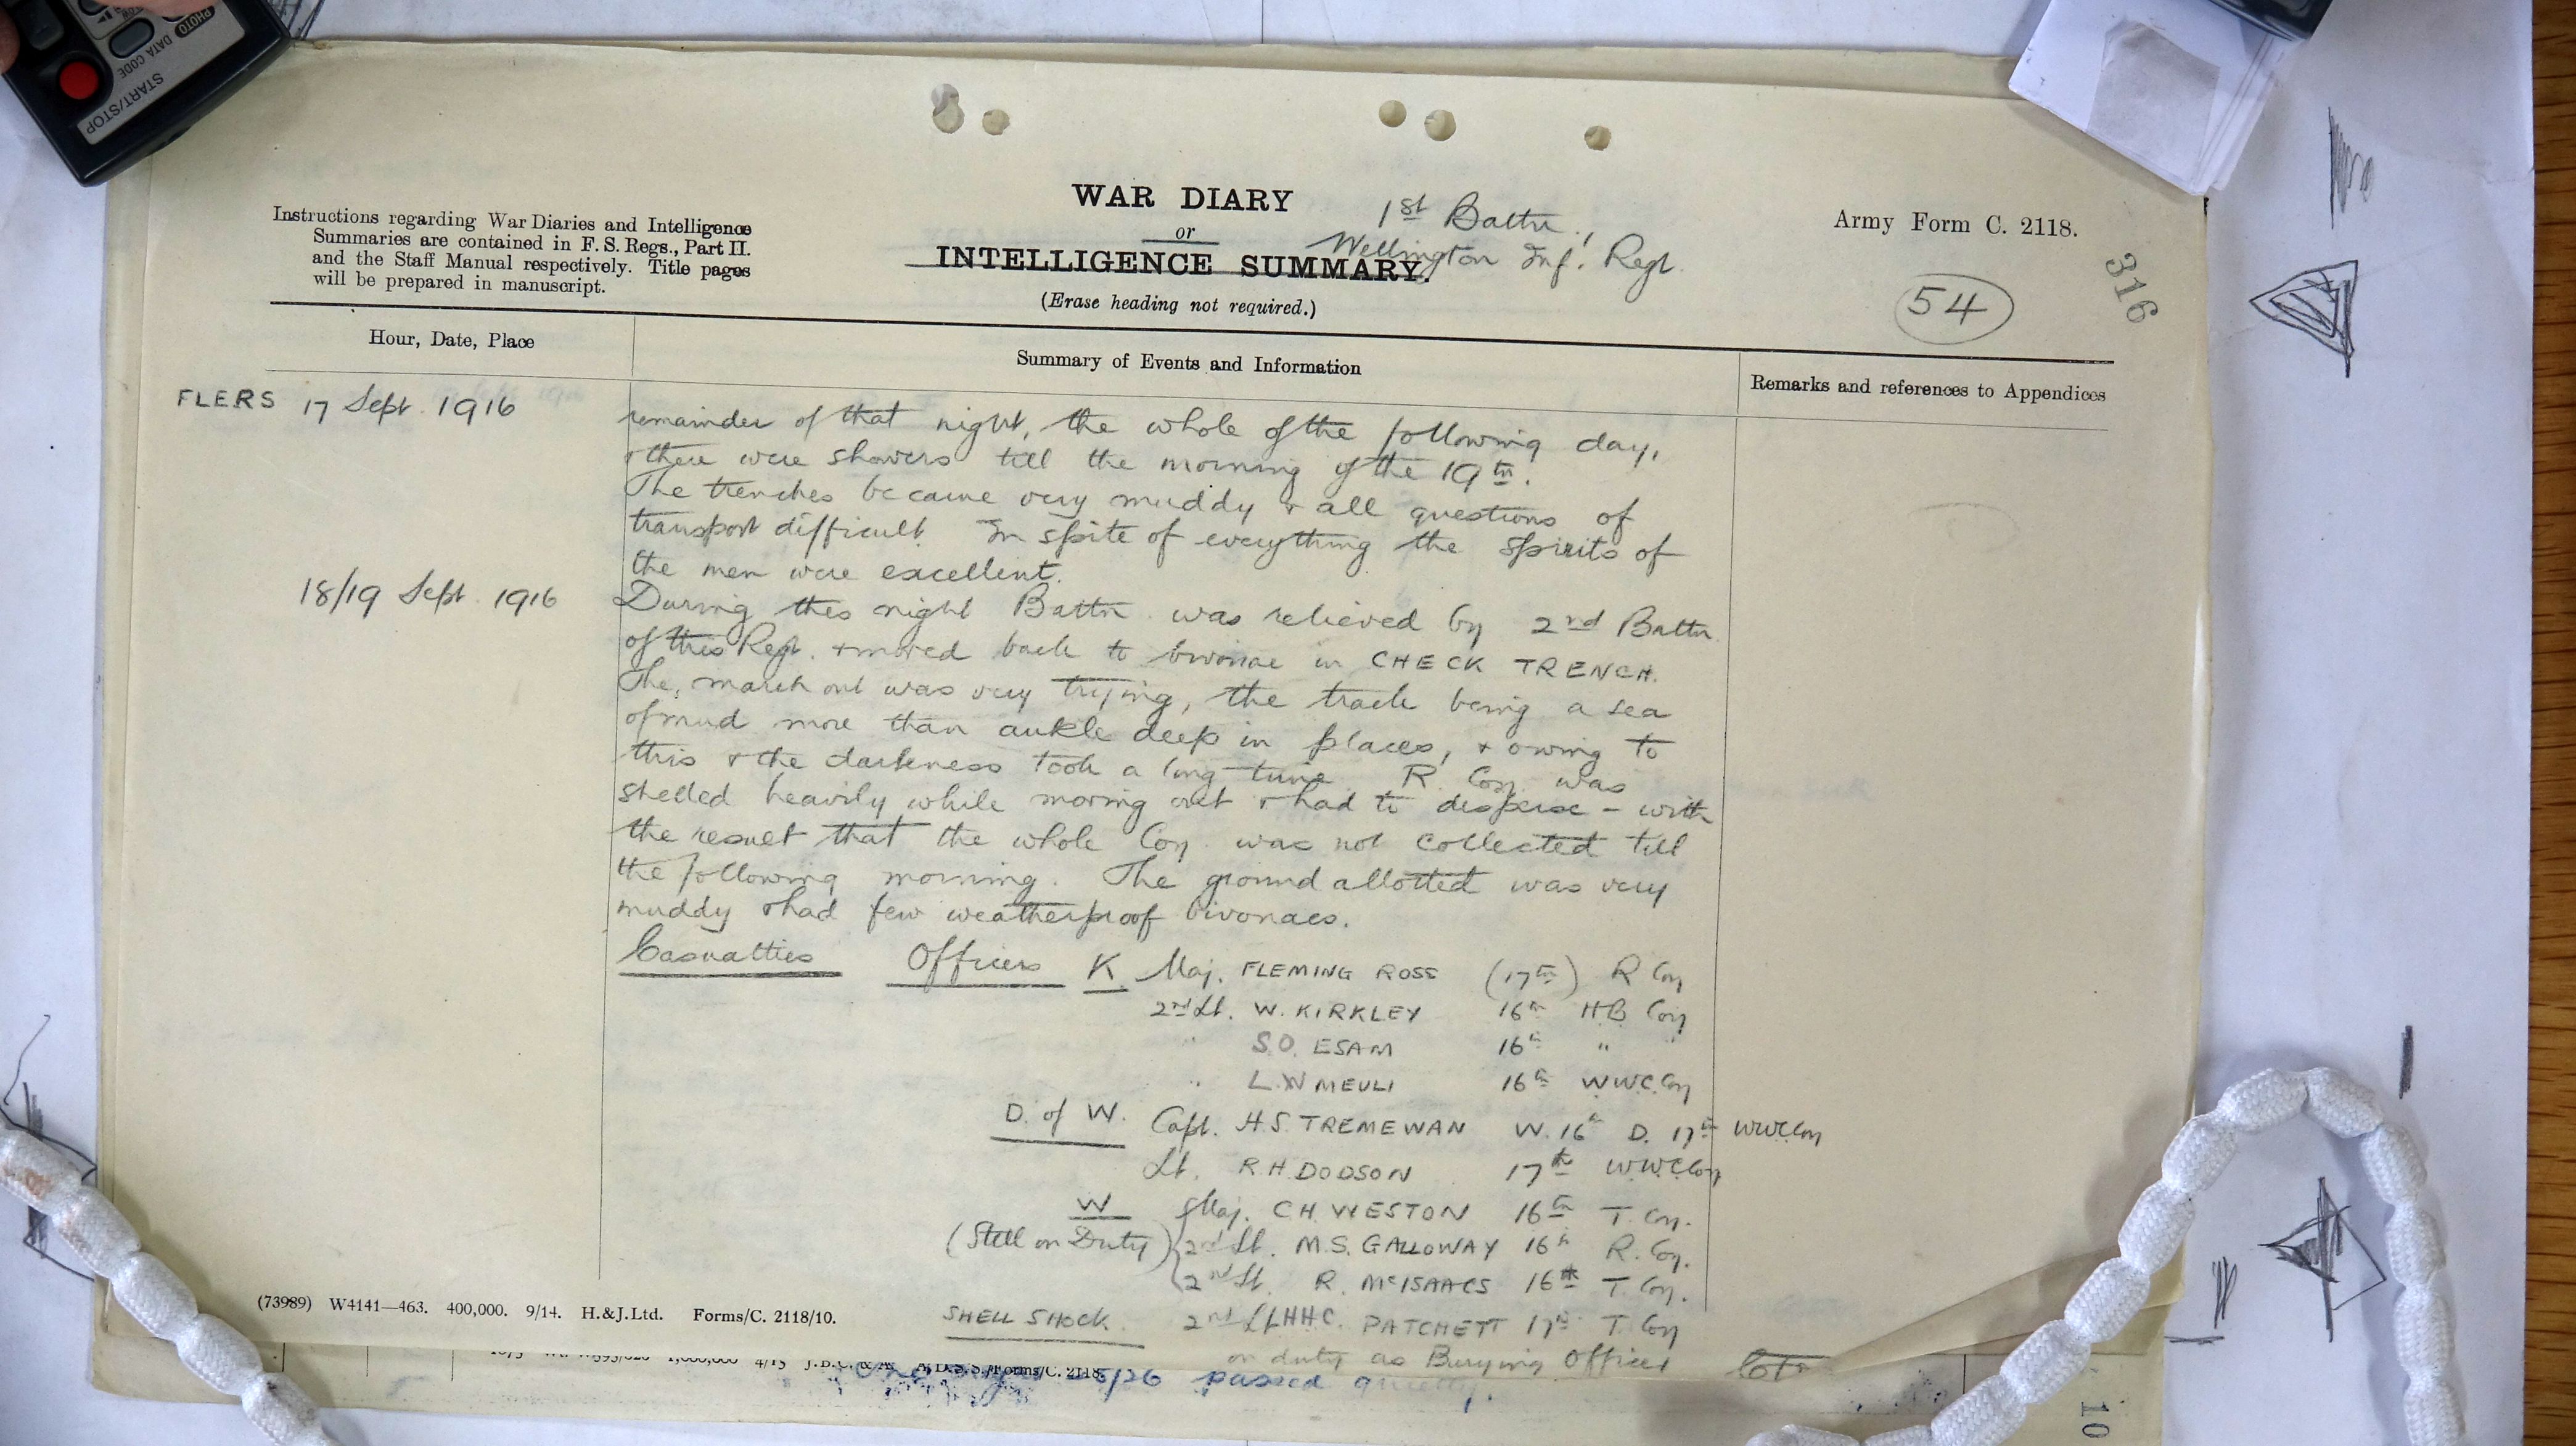 START/STOP
DATA CODE
PHOTO
Instructions regarding War Diaries and Intelligence
Summaries are contained in F. S. Regs., Part II.
and the Staff Manual respectively. Title pages
will be prepared in manuscript.
WAR DIARY
or
INTELLIGENCE SUMMARY.
(Erase heading not required.)
1st Battn.,
Wellington Inf. Regt.
Army Form C. 2118.
54
316
Hour, Date, Place
Summary of Events and Information
Remarks and references to Appendices
FLERS 17 Sept. 1916
remainder of that night, the whole of the following day,
& there were showers till the morning of the 19th.
The trenches became very muddy & all questions of
transport difficult. In spite of everything the spirits of
the men were excellent.
18/19 Sept. 1916
During this night Battn. was relieved by 2nd Battn
of this Regt. & moved back to bivouac in CHECK TRENCH.
The march out was very trying, the track being a sea
of mud more than ankle deep in places, & owing to
this & the darkness took a long time. R. Coy. was
shelled heavily while moving out & had to disperse – with
the result that the whole Coy. was not collected till
the following morning. The ground allotted was very
muddy & had few weatherproof bivouacs.
Casualties Officers K. Maj. FLEMING ROSS (17th) R Coy
2nd Lt. W. KIRKLEY 16th H.B Coy
" S.O. ESAM 16th "
" L.W MEULI 16th W.W.C. Coy
D. of W. Capt. H.S. TREMEWAN W. 16th D. 17th WWC Coy
Lt. R.H. DODSON 17th W.W.C Coy
W Maj. C.H. WESTON 16th T. Coy.
(Still on Duty) 2nd Lt. M.S. GALLOWAY 16th R. Coy.
2nd Lt. R. McISAACS 16th T. Coy.
SHELL SHOCK. 2nd Lt HHC. PATCHETT 17th T. Coy
on duty as Burying Officer
(73989) W4141—463. 400,000. 9/14. H.&J.Ltd. Forms/C. 2118/10.
J.B.C. & A. A.D.S.S./Forms/C. 2118.
passed quietly.
10